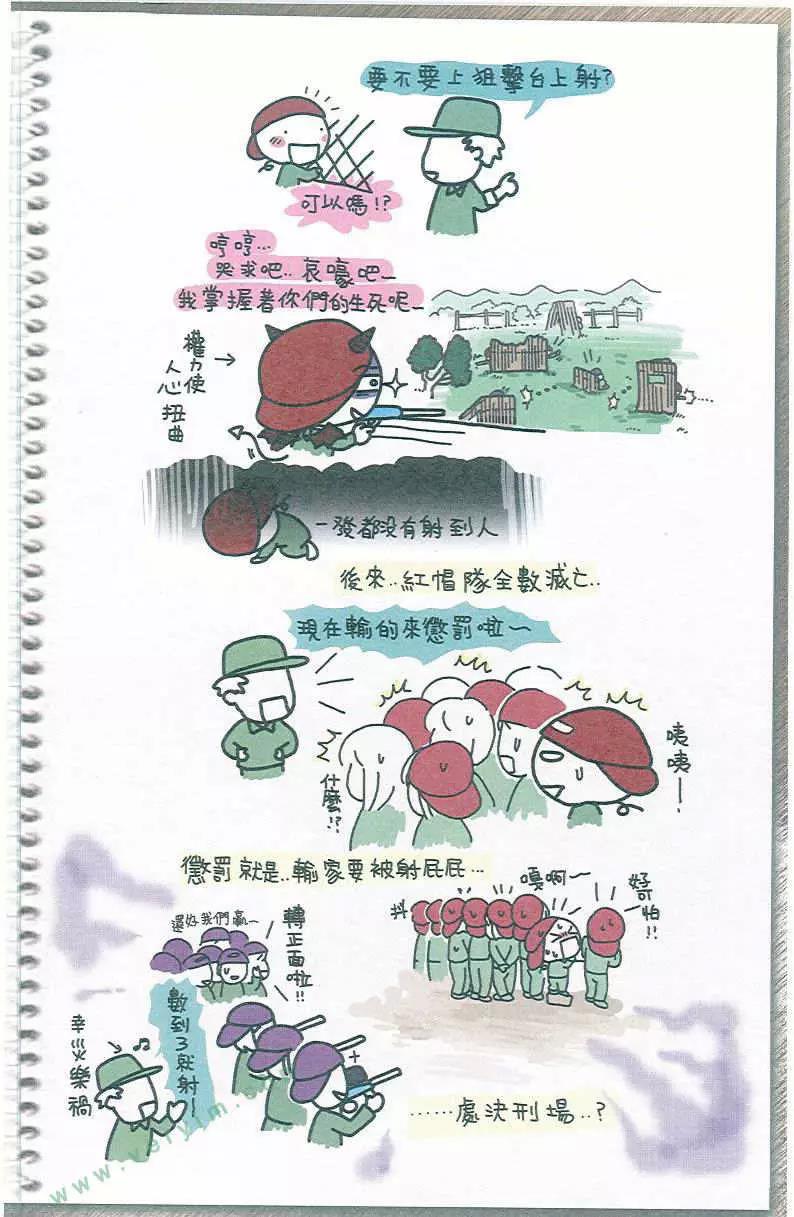 要不要上狙擊台上射?
可以嗎!?
哼哼...
哭求吧..哀嚎吧~
我掌握著你們的生死呢~
權力使
人心扭曲
一發都没有射到人
後來..紅帽隊全數滅亡..
現在輸的來懲罰啦~
什麼!?
咦咦—
懲罰就是..輸家要被射屁屁...
還好我們贏~
轉正面啦!!
抖
嘎啊~
好可怕!!
數到3就射—
幸災樂禍
……處決刑場..?